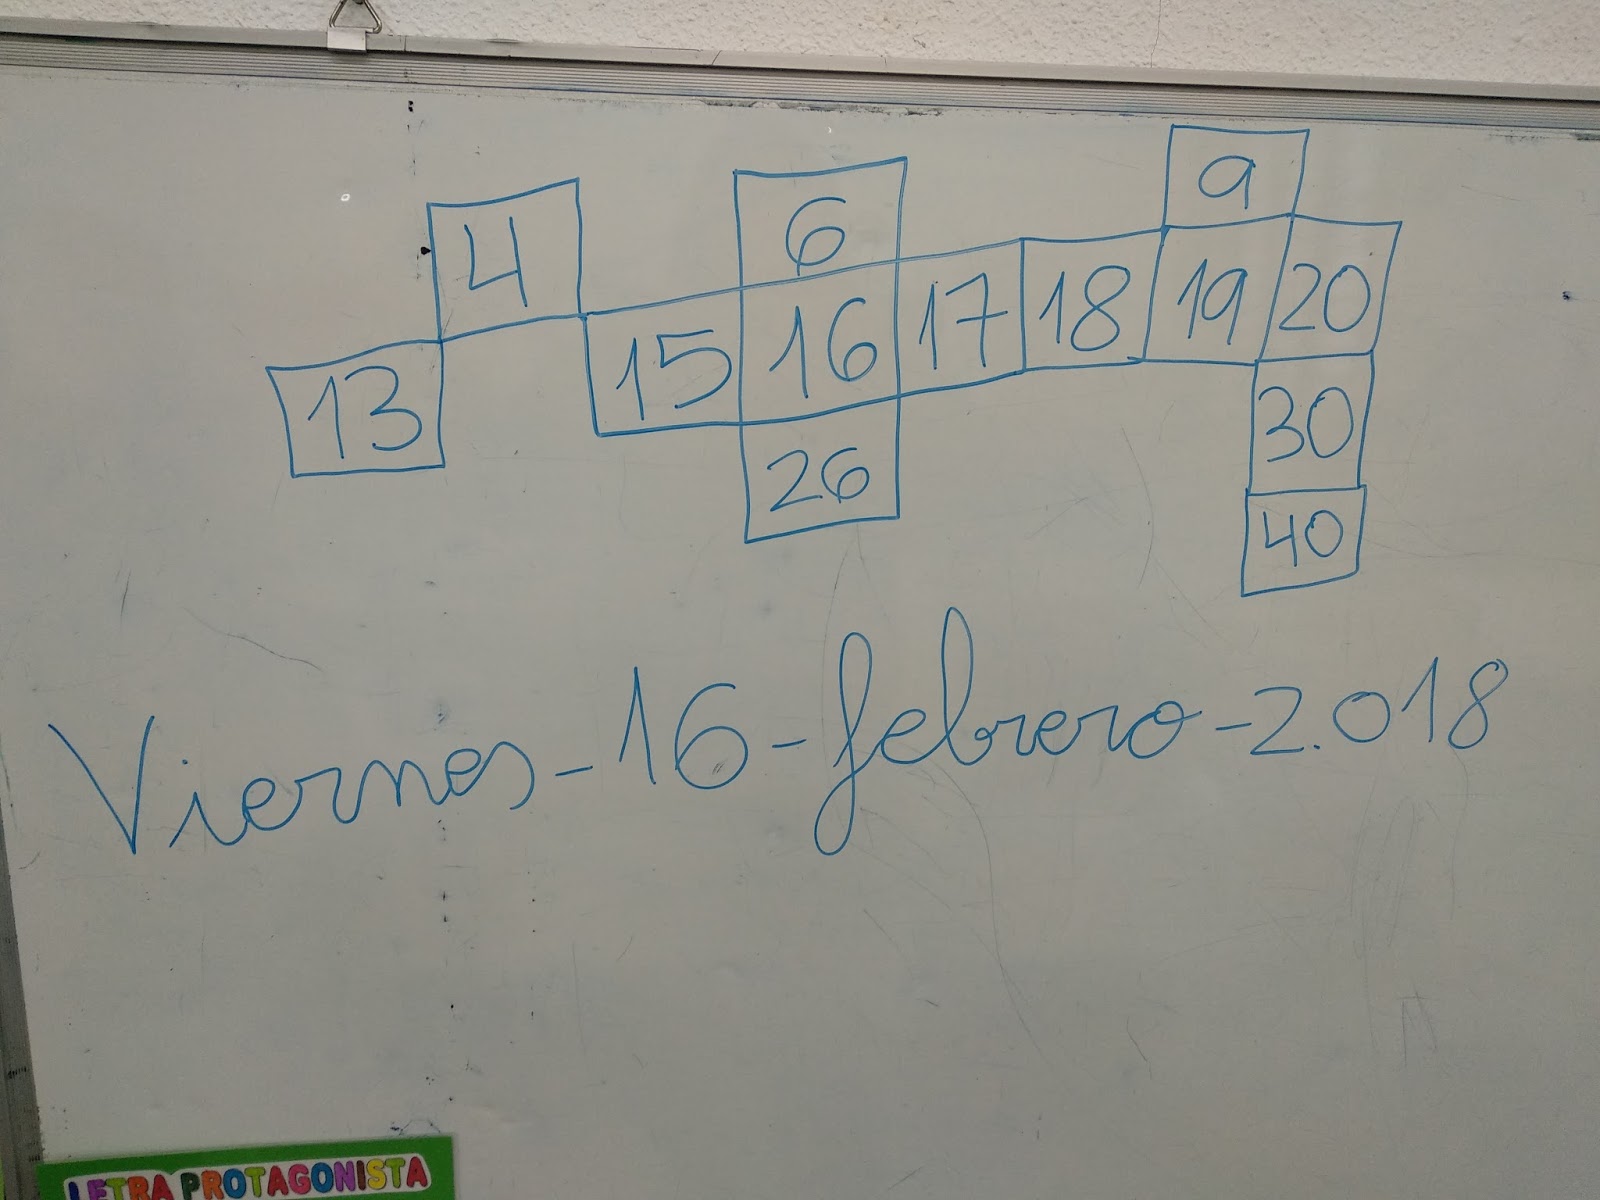 4 6 9
13 15 16 17 18 19 20
26 30
40
Viernes-16-febrero-2.018
LETRA PROTAGONISTA